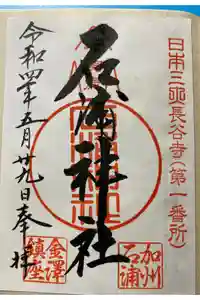 日本三所長谷寺(第一番所)
石浦神社
加州
石浦
金澤
鎮座
令和四年五月廿九日奉拝